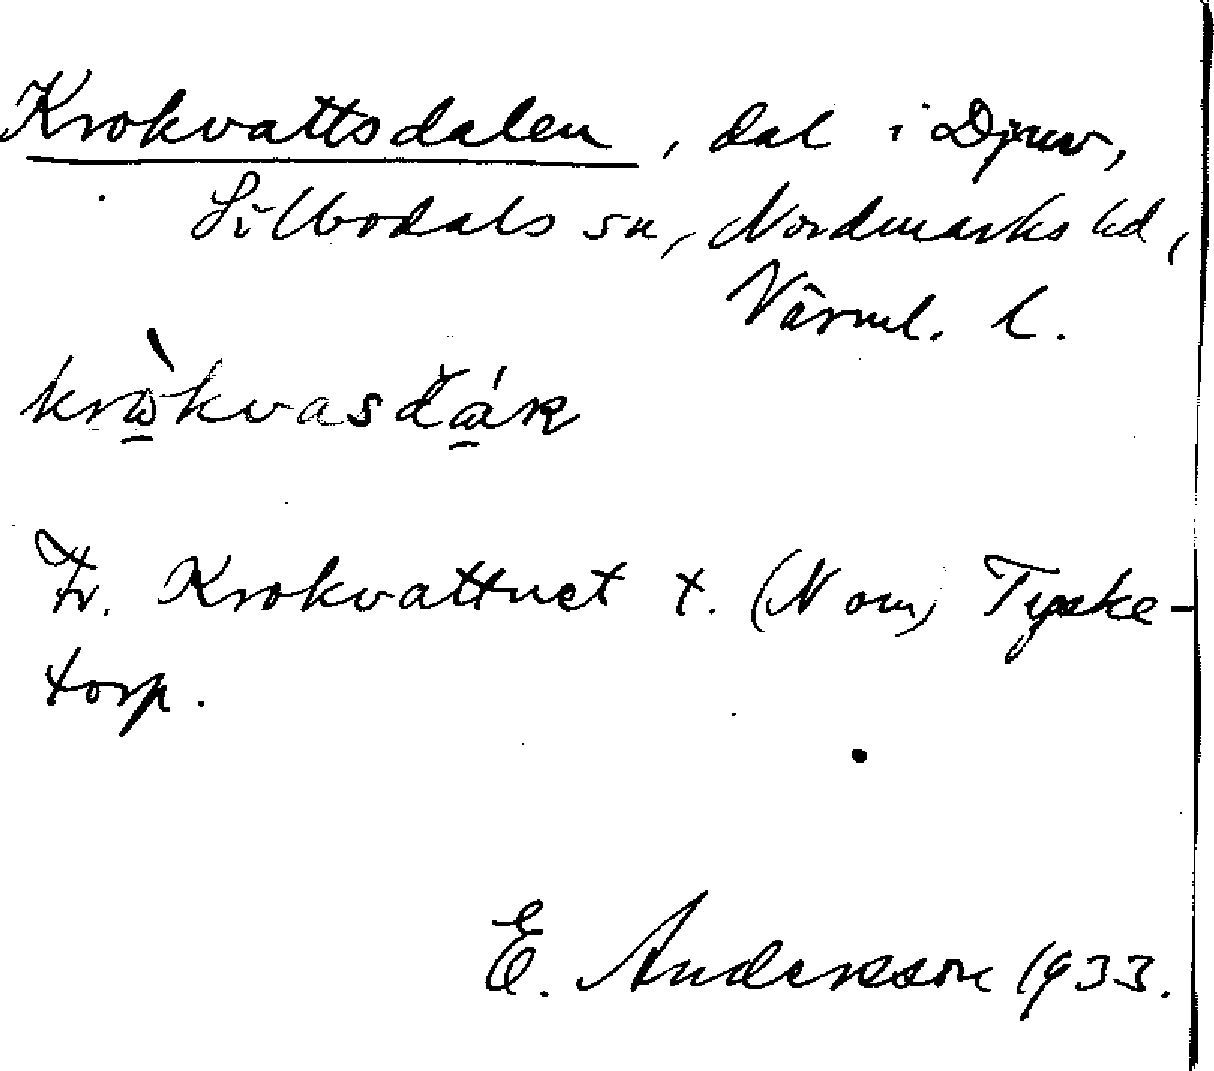 Krokvattsdalen, dal i Djuv,
Silbodals sn, Nordmarks hd,
Värml. l.
Fr. Krokvattnet t. (N om) Tyske-
torp.
E. Andersson 1933.